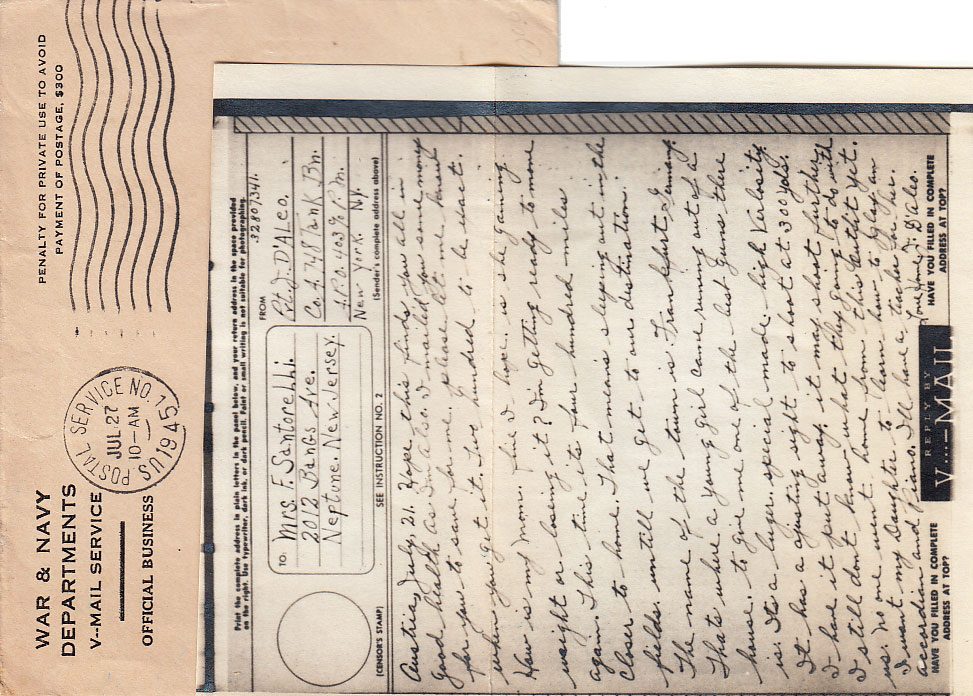 WAR & NAVY
DEPARTMENTS
V--MAIL SERVICE
OFFICIAL BUSINESS
U S POSTAL SERVICE NO. 1
JUL 27
10-AM
1945
PENALTY FOR PRIVATE USE TO AVOID
PAYMENT OF POSTAGE, $300
Print the complete address in plain letters in the panel below, and your return address in the space provided
on the right. Use typewriter, dark ink, or dark pencil. Faint or small writing is not suitable for photographing.
TO:
Mrs. F. Santorelli.
2012 Bangs Ave.
Neptone. New Jersey.
FROM
32807341.
Pvt. J. D'Aleo.
Co. A. 748 Tank Bn.
A.P.O. 403 % P.M.
New York. N.y.
(CENSOR'S STAMP)
SEE INSTRUCTION NO. 2
(Sender's complete address above)
Austria, July, 21. Hope this finds you all in
good health as I'm also. I mailed you some money
for you to save for me. Please let me know
when you get it. Two hundred to be exact.
How is my mom. fine I hope. is she gaining
weight or losing it? I'm getting ready to move
again. This time its four hundred miles
closer to home. That means sleeping out in the
fields untill we get to our destination.
The name of the town is Frankfurt, Germany.
Thats where a young girl came running out of a
house. to give me one of the best guns there
is. Its a luger. special made. high Verlosity
It has a ajusting sight to shoot at 300 yds.
I have it sent away, it may shoot further.
I still don't know what they going to do with
us. no one went home from this outfit yet.
I want my Daughter to learn how to play an
accordian and piano. I'll have a teacher for her.
Love John J. D'Aleo.
HAVE YOU FILLED IN COMPLETE
ADDRESS AT TOP?
REPLY BY
V···—MAIL
HAVE YOU FILLED IN COMPLETE
ADDRESS AT TOP?